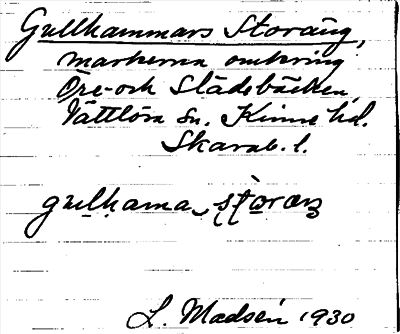 Gullhammars Storäng,
markerna omkring
Öre- och Slädebäcken,
Vättlösa Sn. Kinne hd.
Skarab. l.
L. Madsén 1930